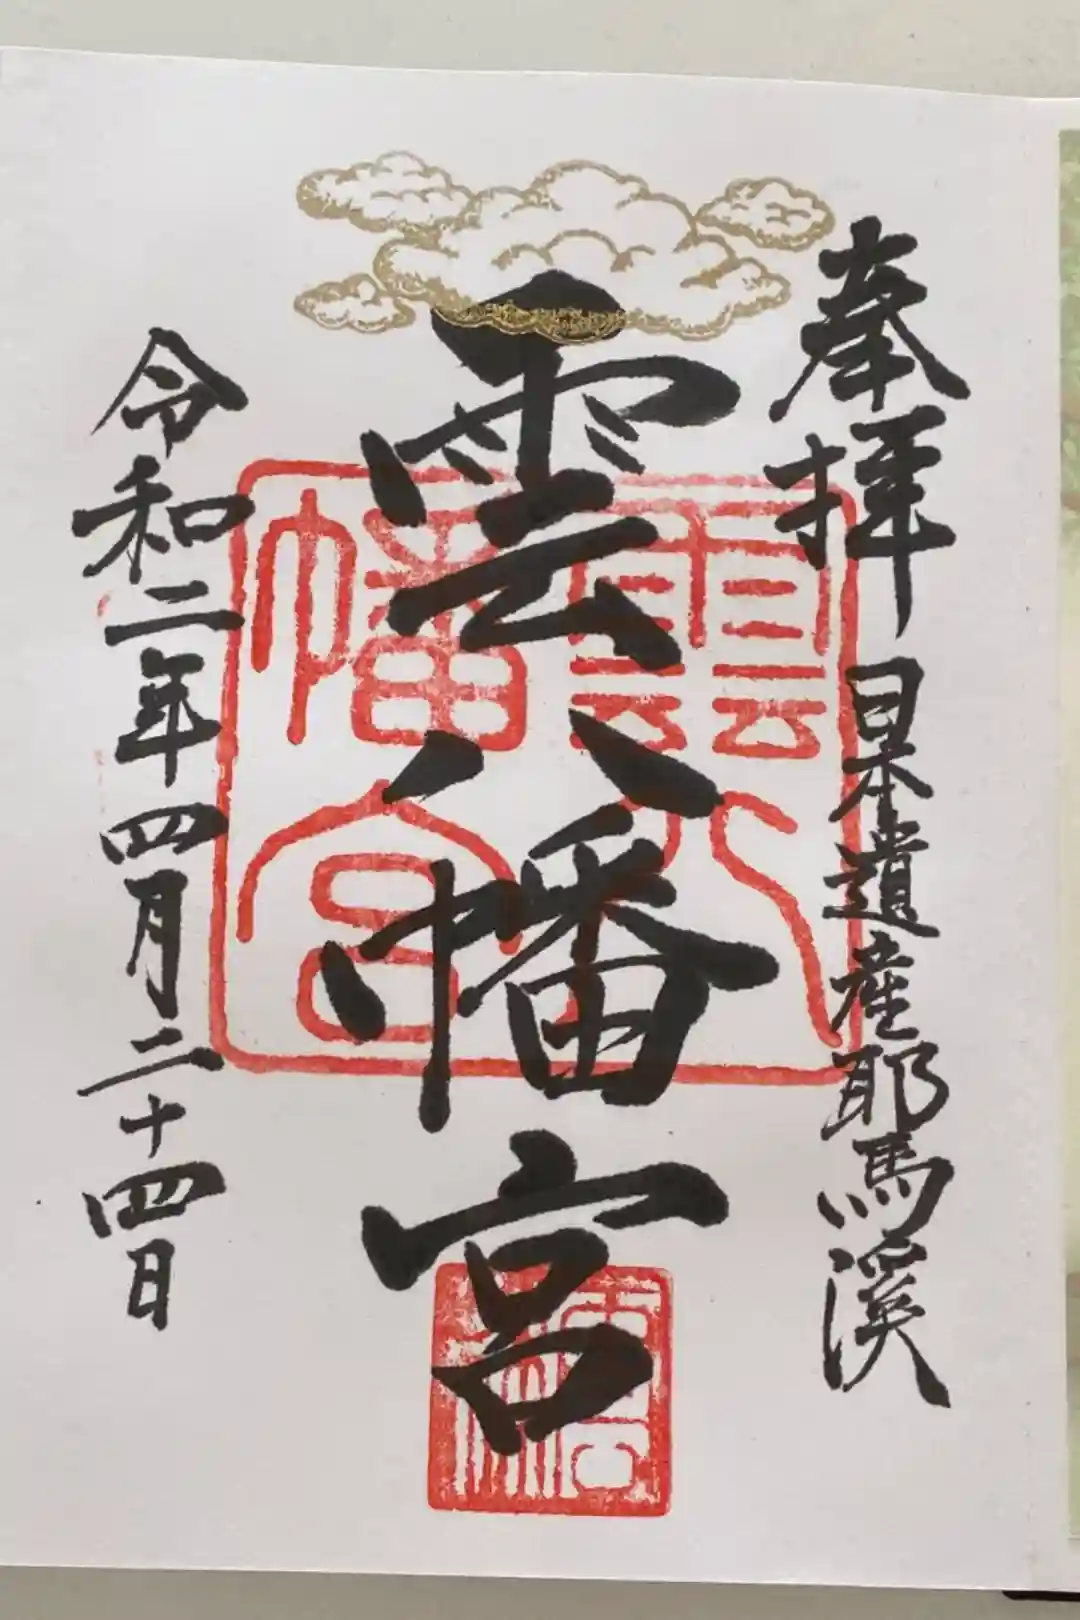 奉拝 日本遺産耶馬溪
雲八幡宮
令和二年四月二十四日
雲八幡宮